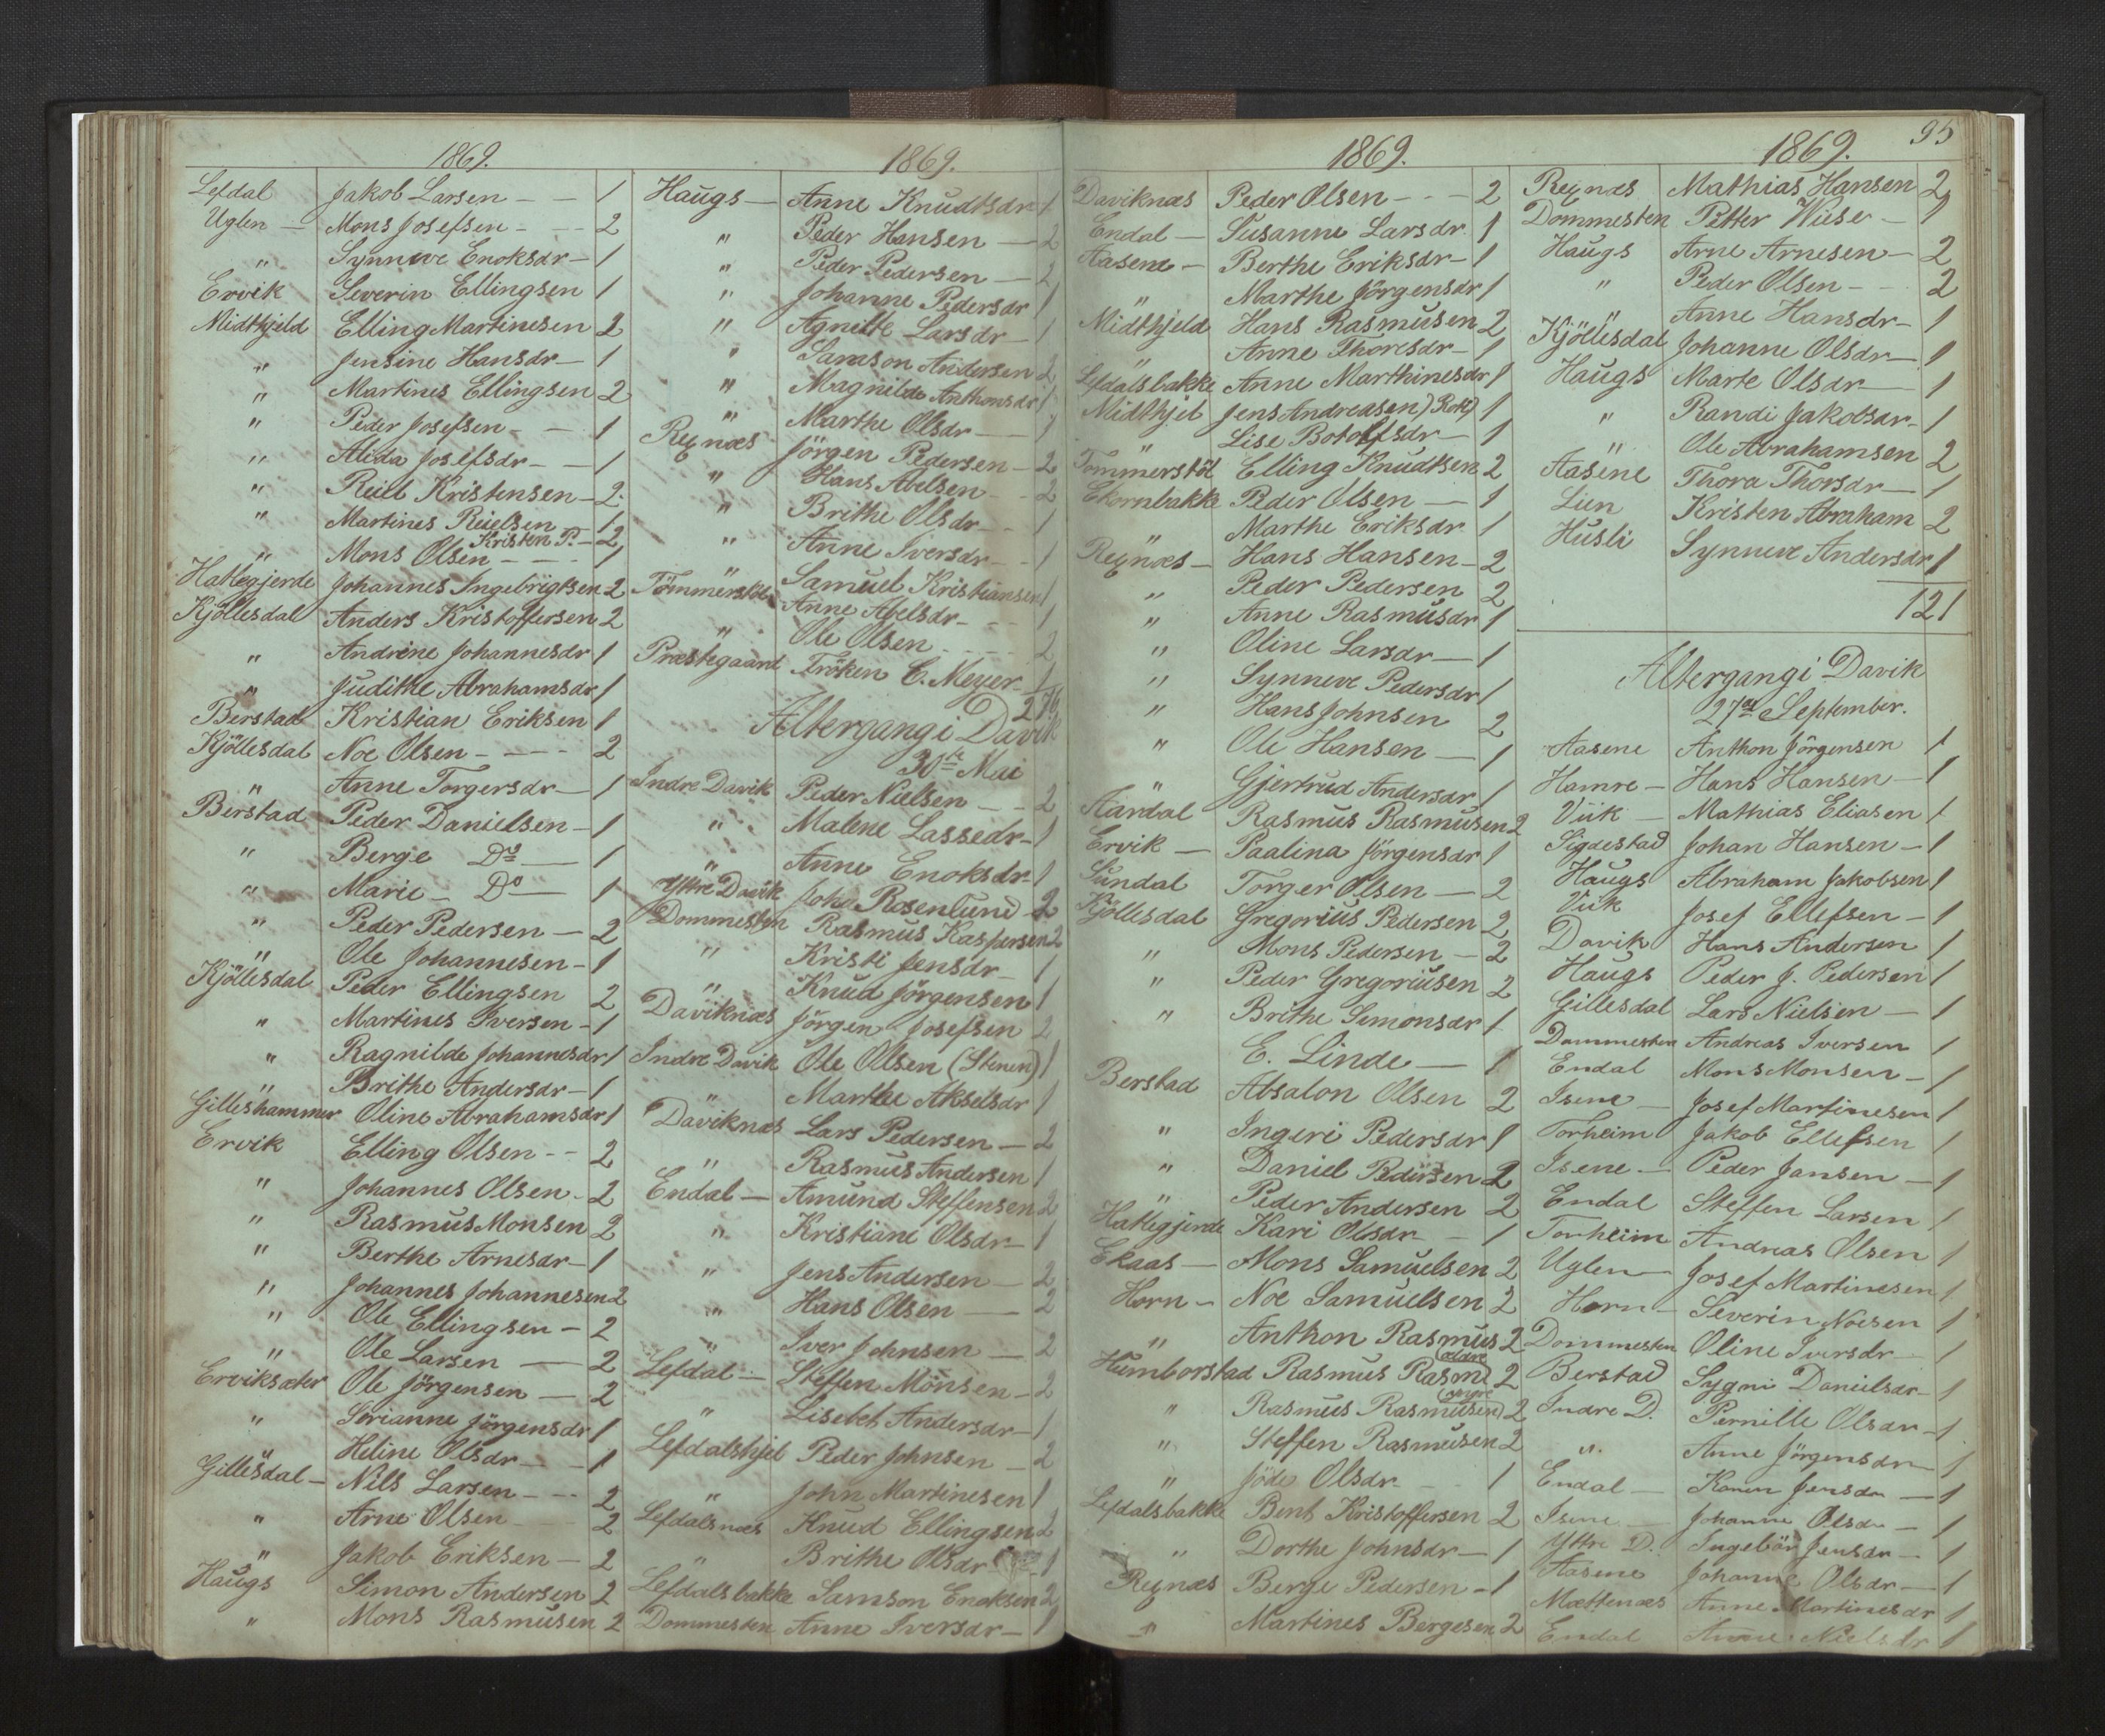 1869.
Lefdal Jakob Larsen - - 1
Uglen - Mons Josefsen - - - 2
" Synneve Enoksdr - 1
Ervik Severin Ellingsen 1
Midthjeld Elling Martinesen 2
" Jensine Hansdr - 1
" Martines Ellingsen 2
" Peder Josefsen - - 1
" Alida Josefsdr - - 1
" Reiel Kristensen - 2
" Martines Reielsen 1
Kristen P. - 2
" Mons Olsen - - - 1
Hatlegjerde Johannes Ingebrigtsen 2
Kjöllesdal Anders Kristoffersen 2
" Andrine Johannesdr 1
" Judithe Abrahamsdr 1
Berstad Kristian Eriksen 1
Kjöllesdal Noe Olsen - - - - 2
" Anne Torgersdr - 1
Berstad Peder Danielsen - 1
" Berge Do - 1
" Marie - Do - 1
" Peder Pedersen - 2
" Ole Johannesen - 1
Kjöllesdal Peder Ellingsen 2
" Martines Iversen - 1
" Ragnilde Johannesdr 1
" Brithe Andersdr - 1
Gilleshammer Oline Abrahamsdr 1
Ervik Elling Olsen - - 2
" Johannes Olsen - 2
" Rasmus Monsen 2
" Berthe Arnesdr - 1
" Johannes Johannesen 2
" Ole Ellingsen - 2
" Ole Larsen - 2
Erviksæter Ole Jörgensen - 2
" Serianne Jörgensdr 1
" Heline Olsdr - - 1
Gillesdal - Nils Larsen - - - 2
" Arne Olsen 2
" Jakob Eriksen - 2
Haugs Simon Andersen 2
" Mons Rasmusen 2
1869.
Haugs - Anne Knudtsdr - 1
" Peder Hansen - 2
" Peder Pedersen - 2
" Johanne Pedersdr 1
" Agnette Larsdr - 1
" Samson Andersen 2
" Magnilde Anthonsdr 1
" Marthe Olsdr - 1
Rexnæs Jörgen Pedersen - 2
" Hans Abelsen - - 2
" Brithe Olsdr - - 1
" Anne Iversdr - - 1
Tömmerstöl Samuel Kristiansen 1
" Anne Abelsdr - - - 1
" Ole Olsen - - - - 2
Præstegaard Fröken C. Meyer - 1
276
Altergang i Davik
30te Mai
Indre Davik Peder Nielsen - - 2
" Malene Lassedr - 1
" Anne Enoksdr - 1
Yttre Davik Joh. Rosenlund - 2
Dommesten Rasmus Kaspersen 2
" Kristi Jensdr - 1
" Knud Jörgensen 1
Daviknæs Jörgen Josefsen 2
Indre Davik Ole Olsen (Stenen) 1
" Marthe Akselsdr 1
Daviknæs Lars Pedersen - 2
" Rasmus Andersen 1
Endal - Amund Steffensen 2
" Kristiane Olsdr - 1
" Jens Andersen - 2
" Hans Olsen - 2
" Iver Johnsen - 2
Lefdal - Steffen Monsen - 2
" Lisebet Andersdr - 1
Lefdalshjel Peder Johnsen - 2
" John Martinesen 1
Lefdalsnæs Knud Ellingsen 2
" Brithe Olsdr - 1
Lefdalsbakke Samson Enoksen 2
Dommesten Anne Iversdr - 1
1869.
Daviknæs Peder Olsen - - - 2
Endal - Susanne Larsdr. 1
Aasene - Berthe Eriksdr - 1
" Marthe Jörgensdr 1
Midthjeld Hans Rasmusen 2
" Anne Thoresdr - 1
Lefdalsbakke Anne Marthinesdr 1
Midthjel Jens Andreasen 1
" Lise Botolfsdr - 1
Tömmerstöl Elling Knudtsen 2
Ekornbakke Peder Olsen - 1
" Marthe Eriksdr 1
Rexnæs - Hans Hansen - 2
" Peder Pedersen 2
" Anne Rasmusdr 1
" Oline Larsdr - 1
" Synneve Pedersdr 1
" Hans Johnsen 2
" Ole Hansen - 1
" Gjertrud Andersdr 1
Aardal Rasmus Rasmusen 2
Ervik - Paalina Jörgensdr 1
Sundal Torger Olsen - 2
Kjöllesdal Gregorius Pedersen 2
" Mons Pedersen - 2
" Peder Gregoriusen 2
" Brithe Simonsdr 1
E. Linde - 1
Berstad Absalon Olsen 2
" Ingeri Pedersdr 1
" Daniel Pedersen 2
" Peder Andersen 2
Hatlegjerde Kari Olsdr - 1
Ekaas - Mons Samuelsen 2
Horn - Noe Samuelsen 2
" Anthon Rasmus 2
Humborstad Rasmus Rasm. (ældre) 2
" Rasmus Rasmusen (yngre) 2
" Steffen Rasmusen 2
" Jöde Olsdr - 1
Lefdalsbakke Bent Kristoffersen 2
" Dorthe Johnsdr - 1
Rexnæs Berge Pedersen - 1
" Martines Bergesen 2
1869. 95
Rexnæs Mathias Hansen 2
Dommesten Petter Wiese - 1
Haugs Arne Arnesen - 2
" Peder Olsen - - 2
" Anne Hansdr - 1
Kjöllesdal Johanne Olsdr - 1
Haugs Marte Olsdr - 1
" Randi Jakobsdr - 1
" Ole Abrahamsen 2
Aasene Thora Thorsdr - 1
Lien Kristen Abraham 2
Husli Synneve Andersdr 1
121
Altergang i Davik
27de September.
Aasene Anthon Jörgensen 1
Hamre - Hans Hansen - 1
Viik - Mathias Eliasen 1
Sigdestad Johan Hansen - 1
Haugs Abraham Jakobsen 1
Viik Josef Ellefsen - 1
Davik Hans Andersen 1
Haugs Peder J. Pedersen 1
Gillesdal Lars Nielsen - 1
Dommesten Andreas Iversen 1
Endal Mons Monsen - 1
Isene - Josef Martinesen 1
Torheim Jakob Ellefsen 1
Isene - Peder Jansen - 1
Endal Steffen Larsen 1
Torheim Andreas Olsen 1
Uglen - Josef Martinesen 1
Horn - Severin Noesen 1
Dommesten Oline Iversdr - 1
Berstad Sygni Danielsdr - 1
Indre D. Pernille Olsdr - 1
" Anne Jörgensdr - 1
Endal - Karen Jensdr - 1
Isene - Johanne Olsdr - 1
Yttre D. Ingebör Jensdr - 1
Aasene Johanne Olsdr - 1
Mættenæs Anne Martinesdr 1
Endal Anne Nielsdr 1